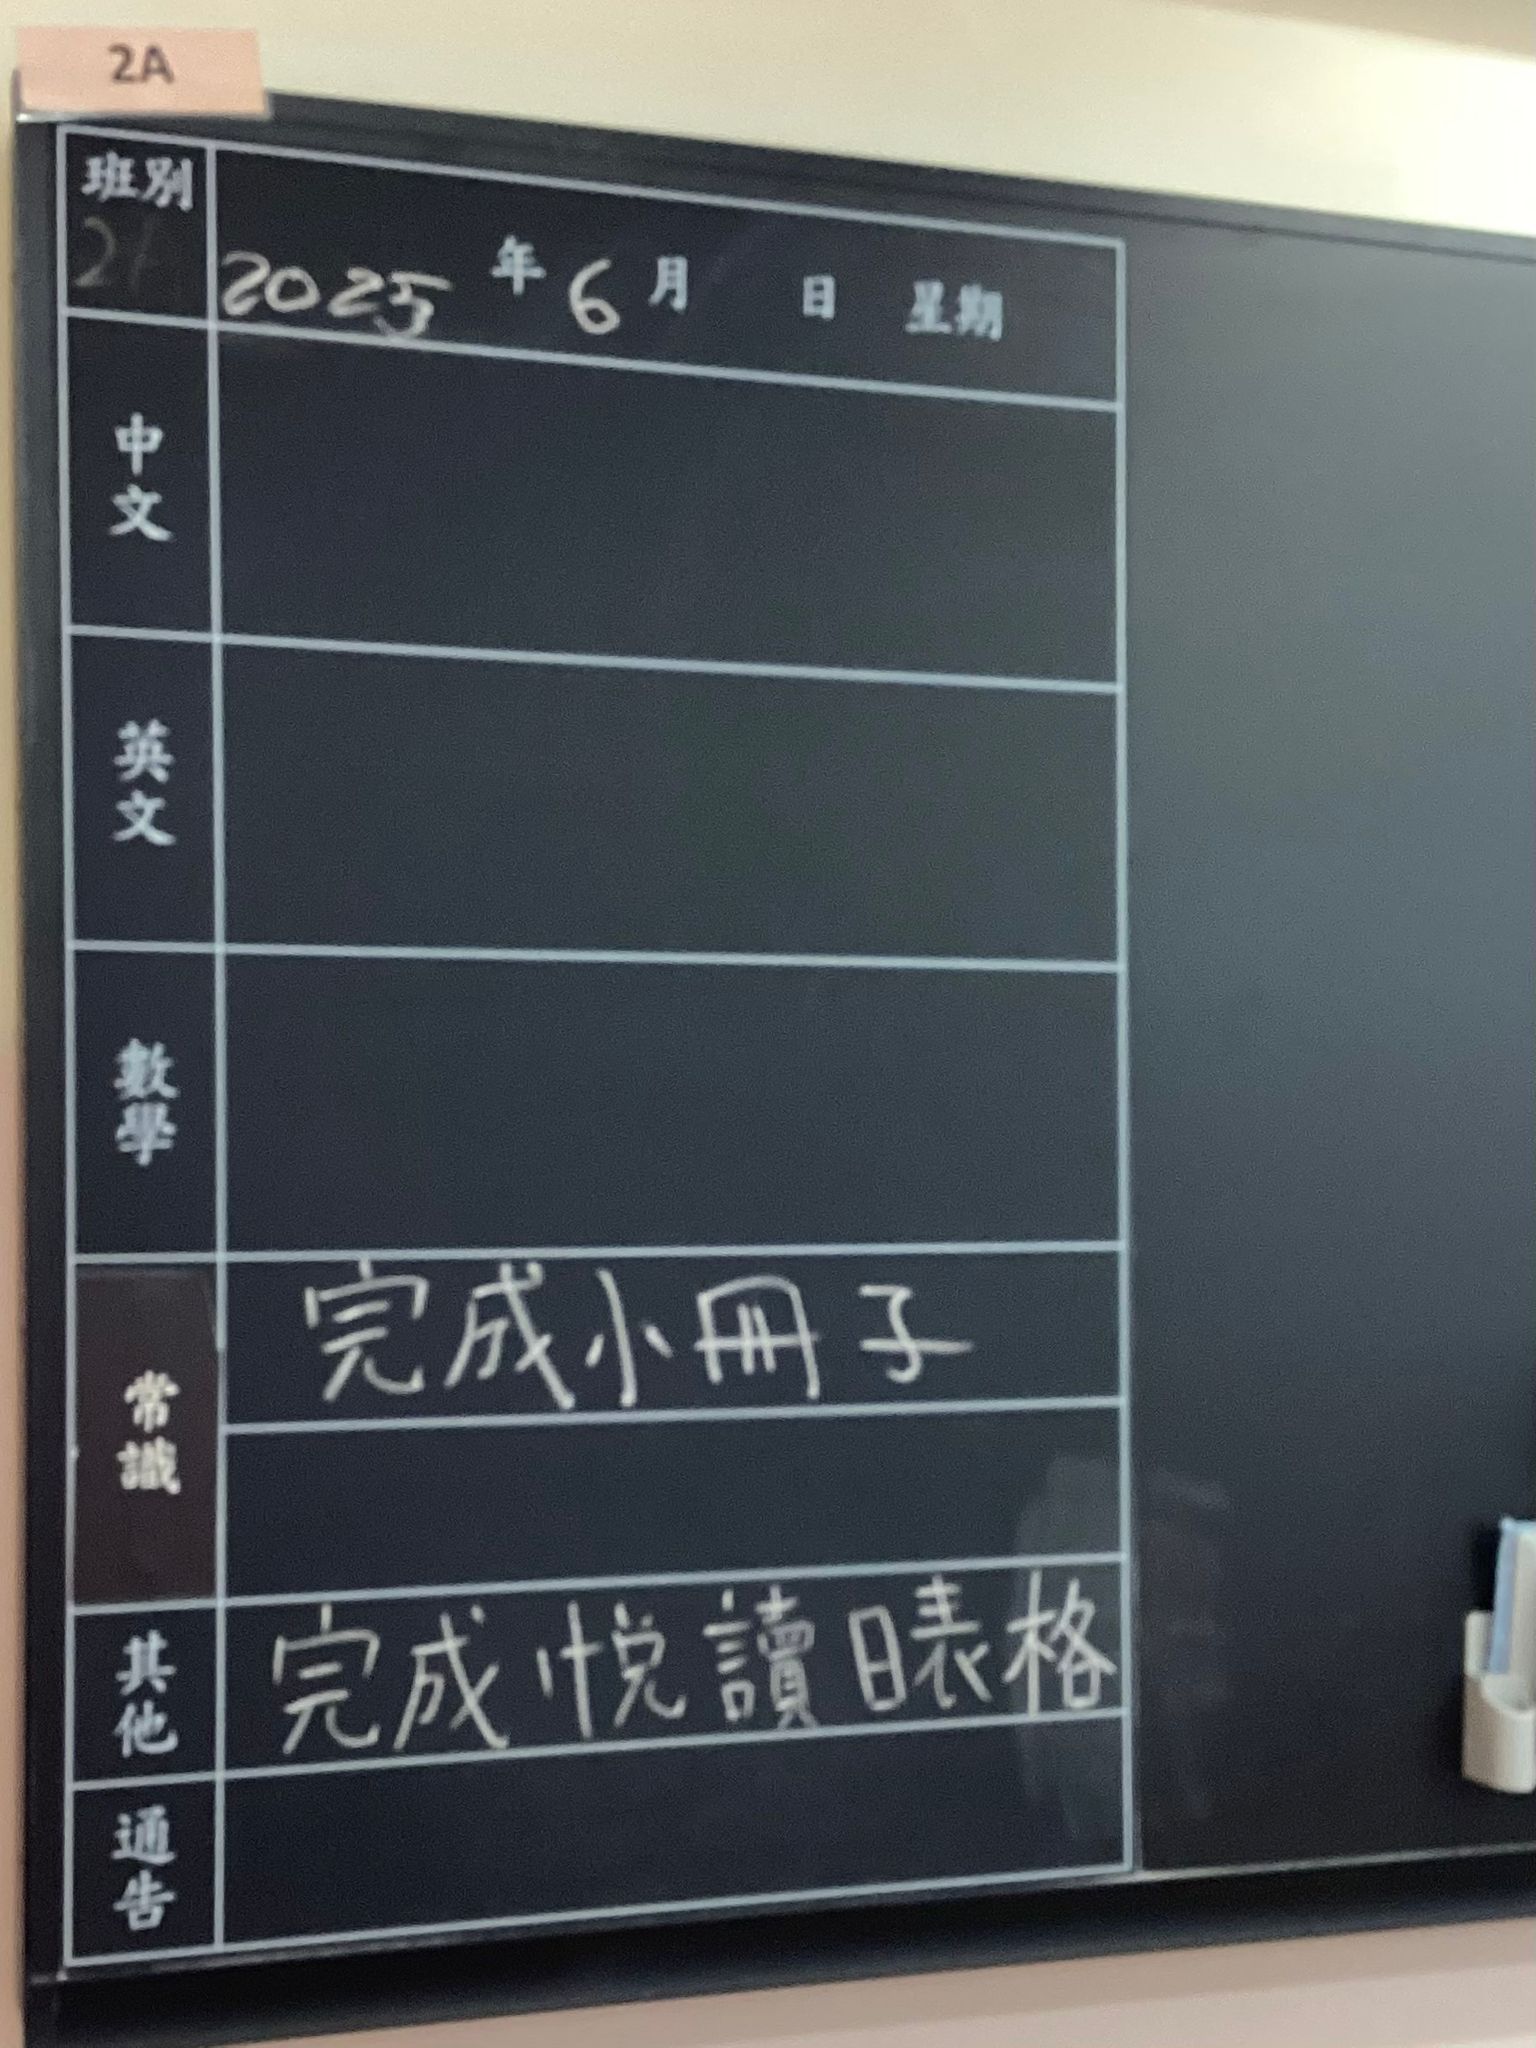 2A
班別
2025 年 6 月 日 星期
中文
英文
數學
常識 完成小冊子
其他 完成悅讀日表格
通告